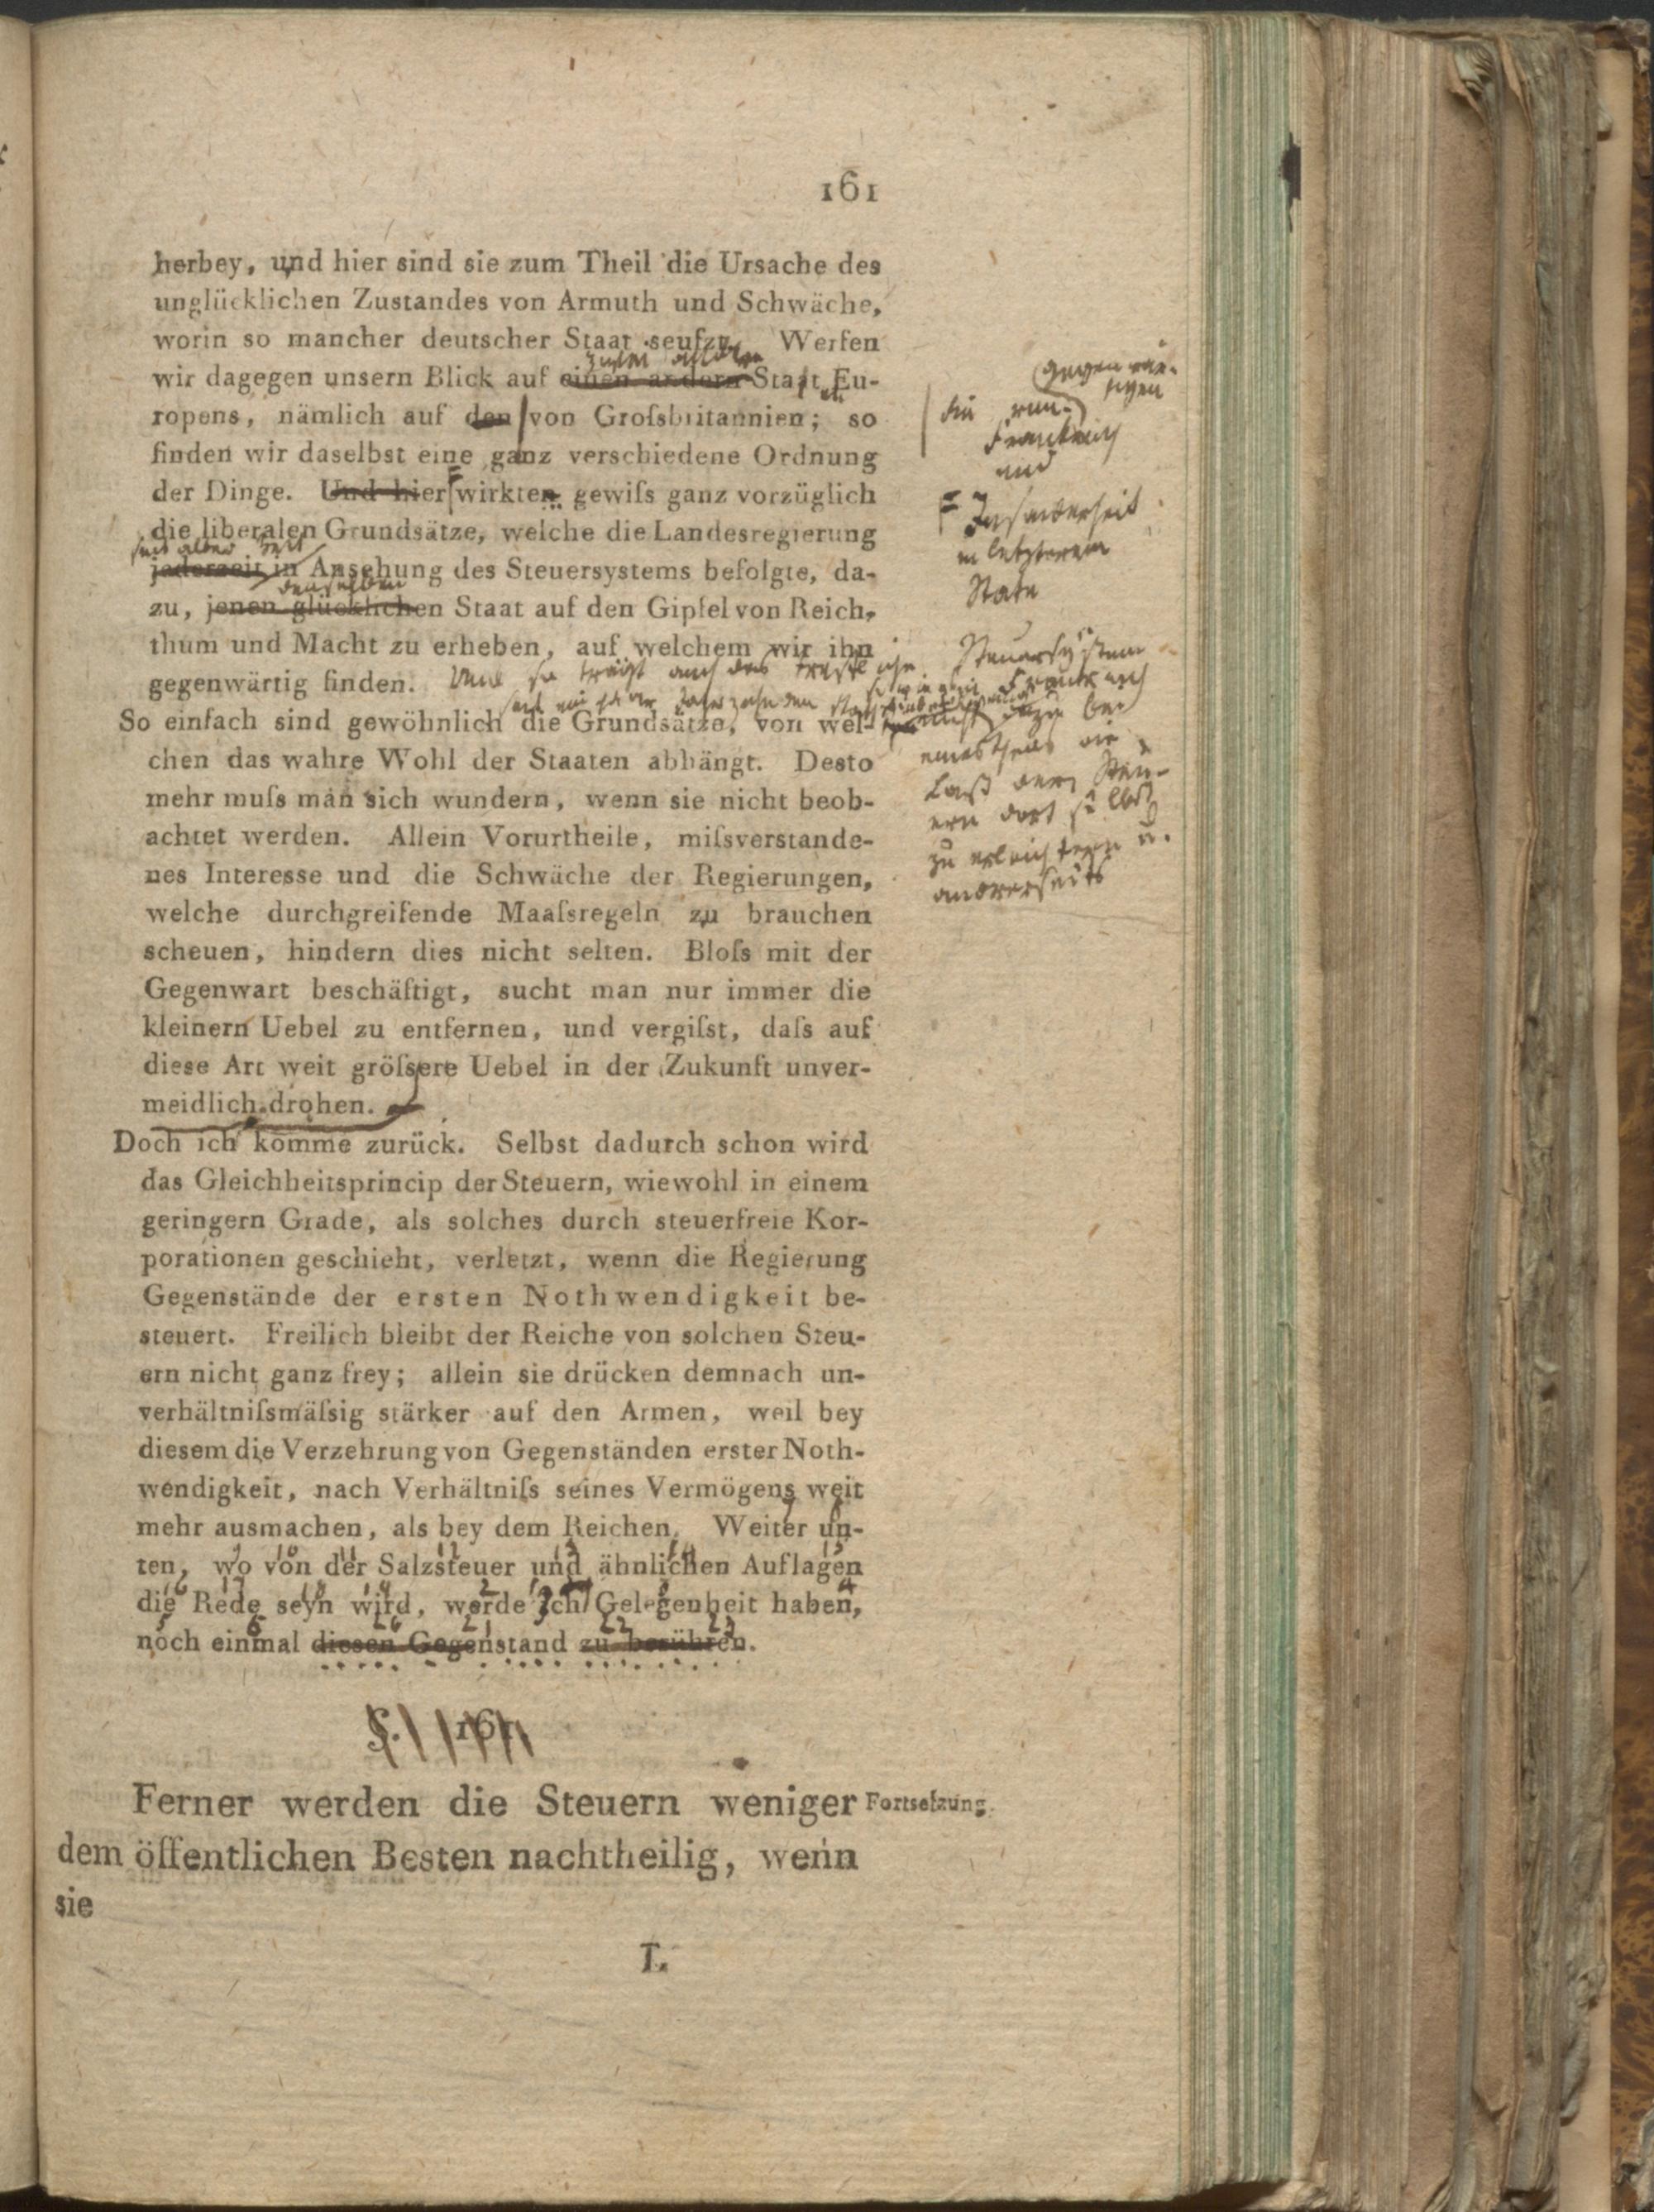 161
herbey, und hier sind sie zum Theil die Ursache des
unglücklichen Zustandes von Armuth und Schwäche,
worin so mancher deutscher Staat seufzt. Werfen
zwen andere
wir dagegen unsern Blick auf einen andern Staat Eu-
ropens, nämlich auf den von Groſsbritannien; so
finden wir daselbst eine ganz verschiedene Ordnung
der Dinge. Und hier wirkten gewiſs ganz vorzüglich
die liberalen Grundsätze, welche die Landesregierung
jederzeit in Ansehung des Steuersystems befolgte, da-
denselben
zu, jenen glücklichen Staat auf den Gipfel von Reich-
thum und Macht zu erheben, auf welchem wir ihn
gegenwärtig finden.
Und so trägt auch das
So einfach sind gewöhnlich die Grundsätze, von wel-
chen das wahre Wohl der Staaten abhängt. Desto
mehr muſs man sich wundern, wenn sie nicht beob-
achtet werden. Allein Vorurtheile, miſsverstande-
nes Interesse und die Schwäche der Regierungen,
welche durchgreifende Maaſsregeln zu brauchen
scheuen, hindern dies nicht selten. Bloſs mit der
Gegenwart beschäftigt, sucht man nur immer die
kleinern Uebel zu entfernen, und vergiſst, daſs auf
diese Art weit gröſsere Uebel in der Zukunft unver-
meidlich drohen.
Doch ich komme zurück. Selbst dadurch schon wird
das Gleichheitsprincip der Steuern, wiewohl in einem
geringern Grade, als solches durch steuerfreie Kor-
porationen geschieht, verletzt, wenn die Regierung
Gegenstände der ersten Nothwendigkeit be-
steuert. Freilich bleibt der Reiche von solchen Steu-
ern nicht ganz frey; allein sie drücken demnach un-
verhältniſsmäſsig stärker auf den Armen, weil bey
diesem die Verzehrung von Gegenständen erster Noth-
wendigkeit, nach Verhältniſs seines Vermögens weit
mehr ausmachen, als bey dem Reichen. Weiter un-
ten, wo von der Salzsteuer und ähnlichen Auflagen
die Rede seyn wird, werde ich Gelegenheit haben,
noch einmal diesen Gegenstand zu berühren.
§. 161.
Ferner werden die Steuern weniger
dem öffentlichen Besten nachtheilig, wenn
sie
L
Fortsetzung.
gegenwär-
tigen
Frankreich
und
Insonderheit
in letzterem
State
Steuersystem
Frankreich
einestheils die
Last der Steu-
ern dort selbst
zu erleichtern u.
andrerseits